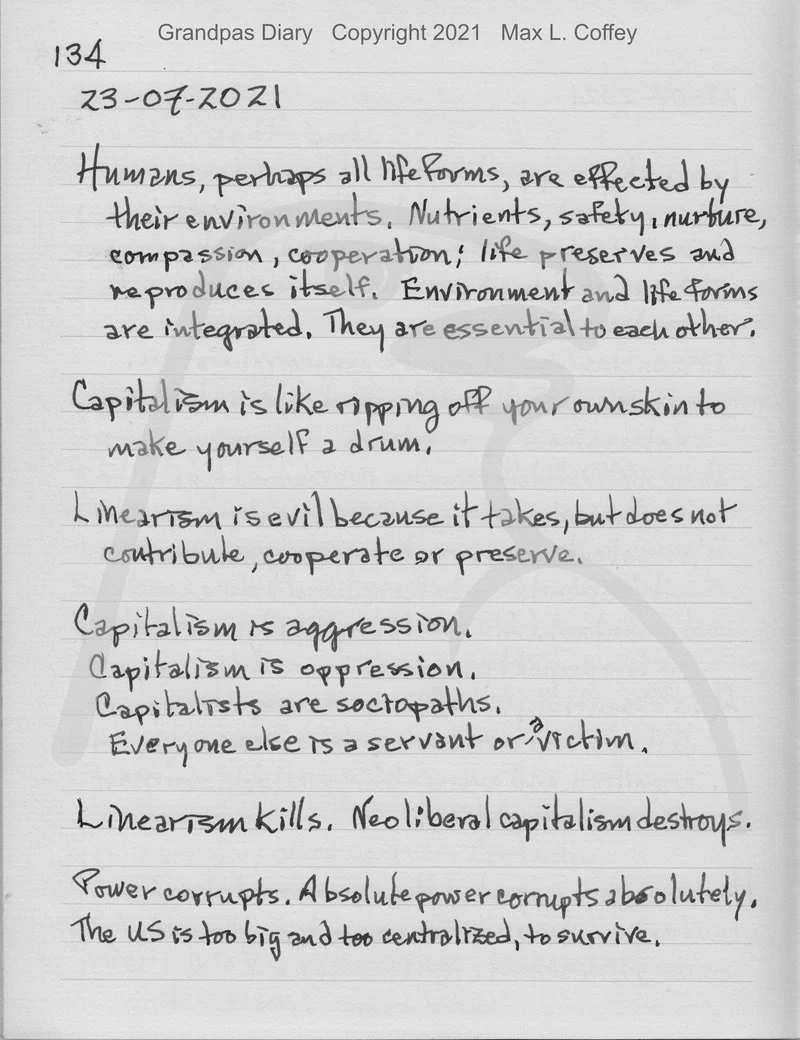 Grandpas Diary Copyright 2021 Max L. Coffey
134
23-07-2021
Humans, perhaps all life forms, are effected by
their environments. Nutrients, safety, nurture,
compassion, cooperation; life preserves and
reproduces itself. Environment and life forms
are integrated. They are essential to each other.
Capitalism is like ripping off your own skin to
make yourself a drum.
Linearism is evil because it takes, but does not
contribute, cooperate or preserve.
Capitalism is aggression.
Capitalism is oppression.
Capitalists are sociopaths.
Everyone else is a servant or a victim.
Linearism kills. Neoliberal capitalism destroys.
Power corrupts. Absolute power corrupts absolutely.
The US is too big and too centralized, to survive.